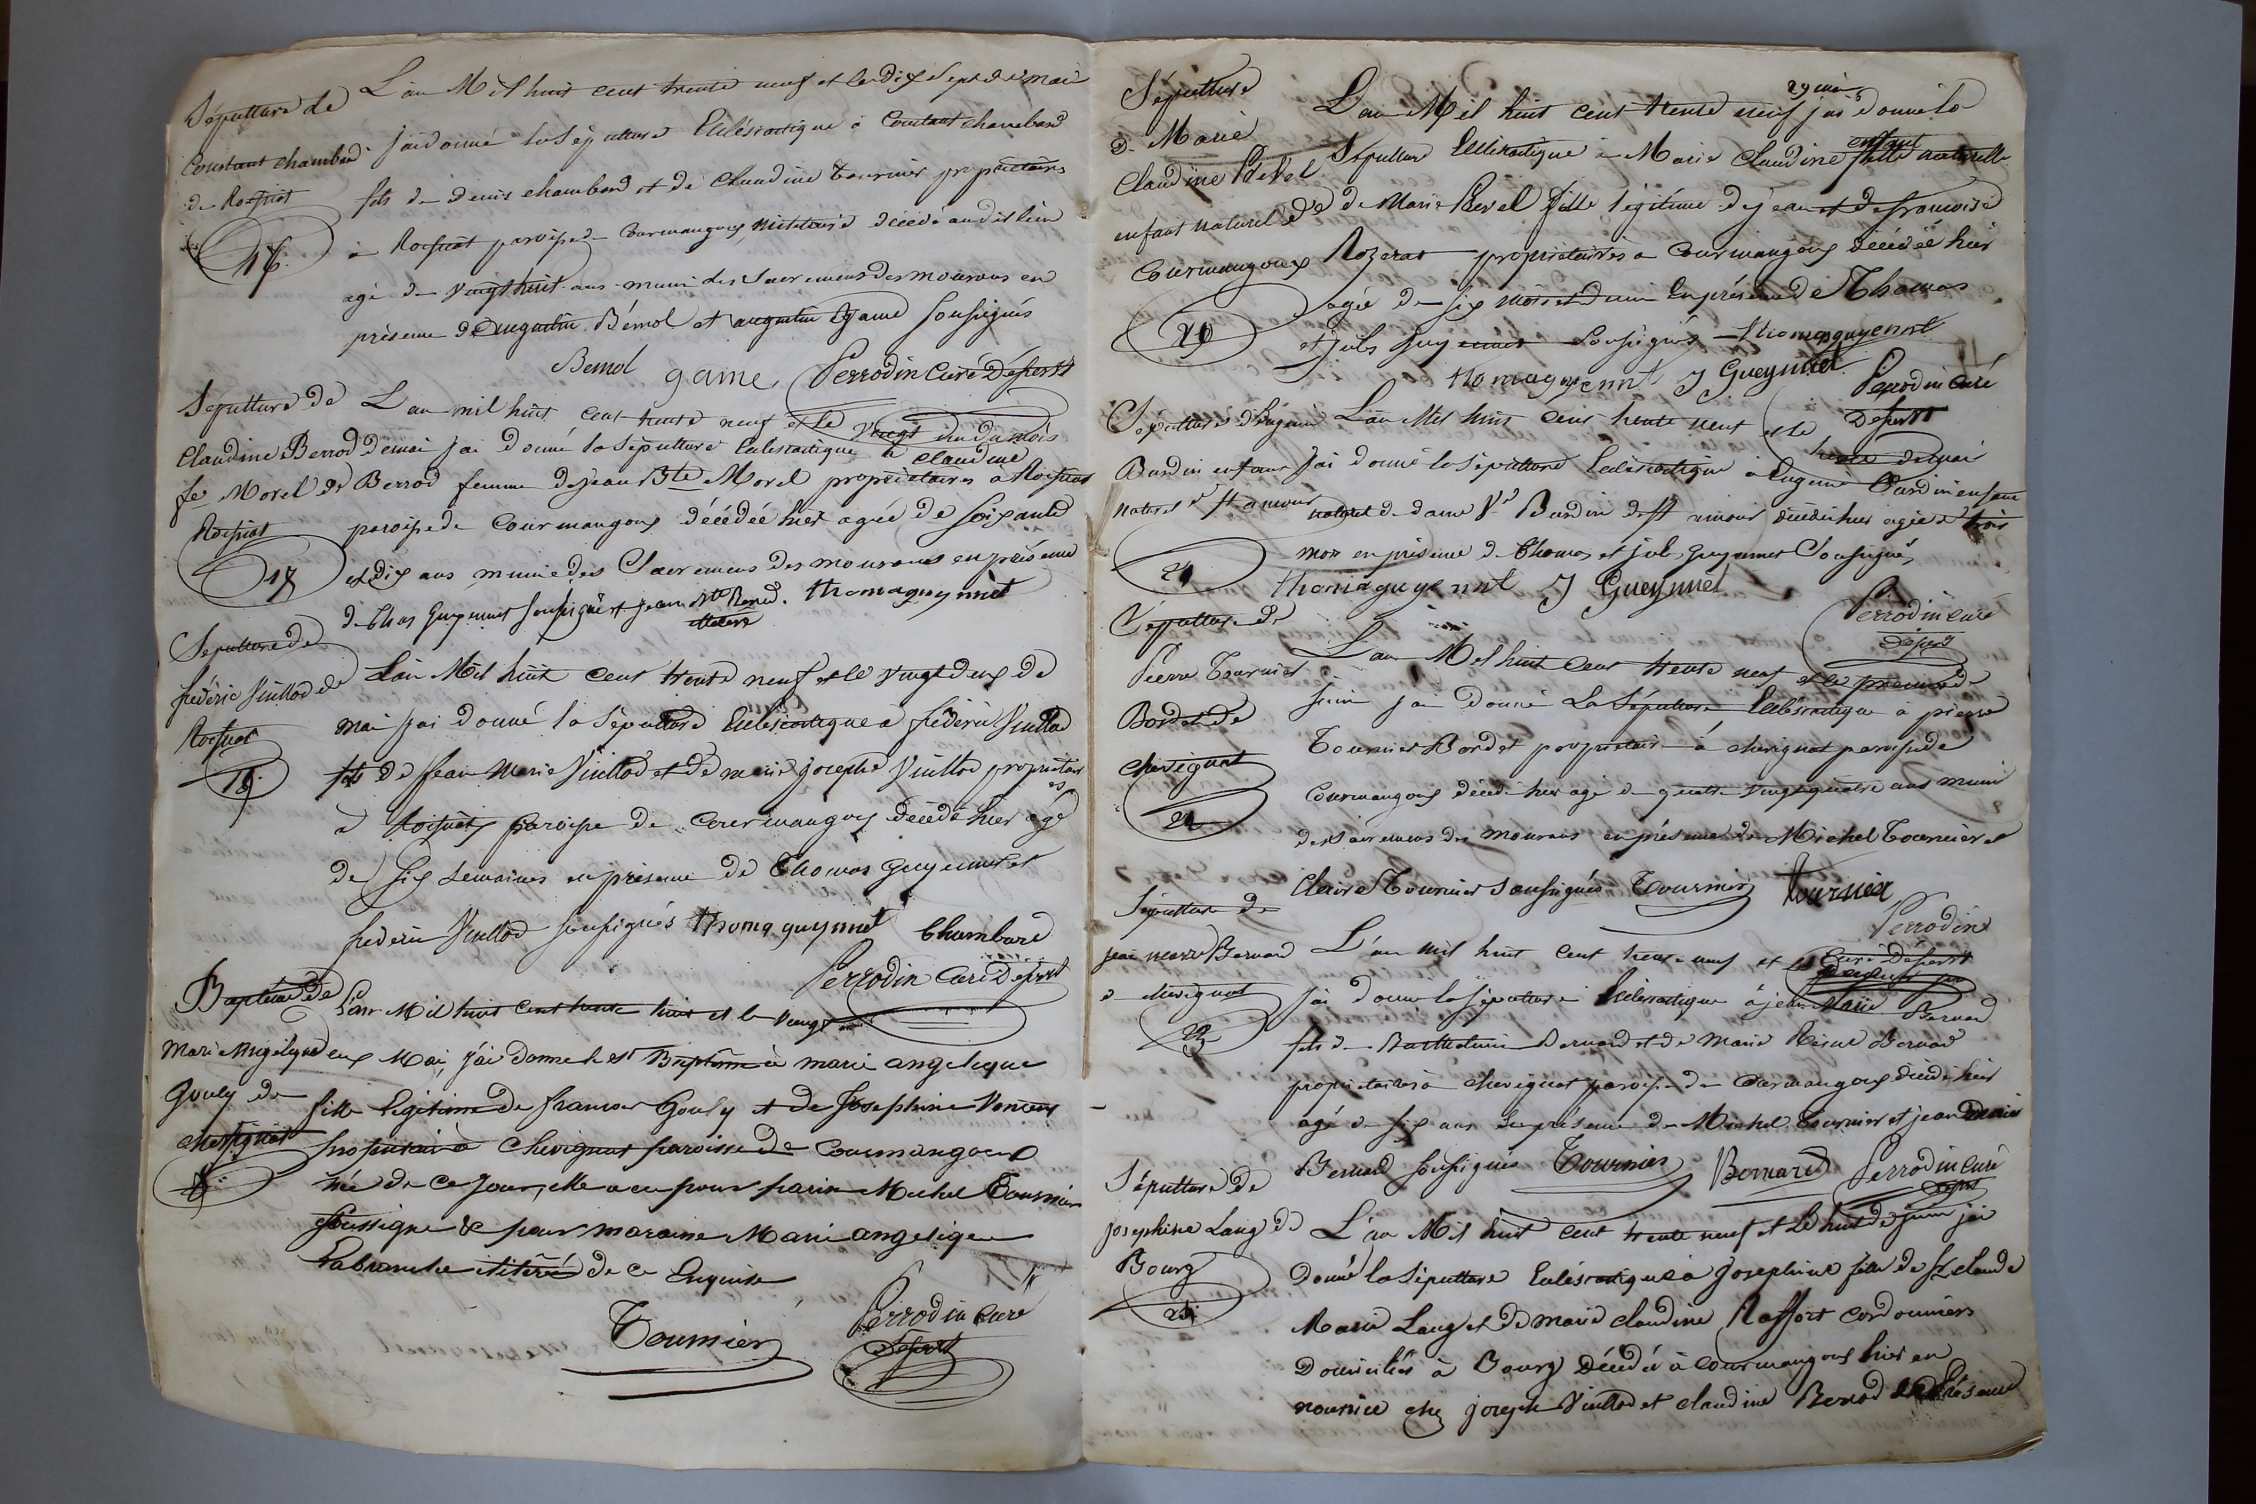 Sépulture de
Constant chambard
de Roissiat
L'an Mil huit cent trente neuf et le dix sept de mai
j'ai donné la sépulture Eclésiastique à Constant chambard
fils de Denis chambard et de Claudine Tournier propriétaires
à Roissiat paroisse de Courmangoux, décédé audit lieu
agé de vingt huit ans muni des Sacremens des mourans en
présence d'augustin Bémol et augustin game soussignés
Bemol game Perrodin Curé Dessert
Sépulture de
Claudine Berrod
fe Morel de
Roissiat
17
L'an mil huit cent trente neuf et le vingt un du mois
de mai j'ai donné la sépulture Eclésiastique à claudine
Berrod femme de jean Bte Morel propriétaires à Roissiat
paroisse de Courmangoux décédée hier agée de soixante
et dix ans munie des Sacremens des mourans en présence
de thos Guyennet soussigné et jean Bte thomaguynnet
Sépulture de
frédéric Vuillod de
Roissiat
18
L'an Mil huit cent trente neuf et le vingt deux de
mai j'ai donné la sépulture Eclésiastique à frédéric Vuillod
fils de Jean Marie Vuillod et de marie josephe Vuillod propriétaires
à Roissiat paroisse de Courmangoux décédé hier agé
de six semaines en présence de Thomas Guyennet et
frederic Vuillod soussignés thoma guynnet Chambard
Perrodin Curé Dessert
Baptême de
Marie Angélique
Gouly de
chevignat
L'an Mil huit cent trente huit et le vingt
deux Mai, j'ai donné le st Baptême à marie angelique
fille légitime de francois Gouly et de Josephine
propriétaire à Chevignat paroisse de Courmangoux
née de ce jour, elle a eu pour parin Michel Tournier
soussigné & pour maraine Marie angelique
Labranche illitéré de ce Enquise
Tournier Perrodin Curé
Dessert
Sépulture
de Marie
Claudine Revel
enfant naturel de
Courmangoux
20
29 mai
L'an Mil huit cent trente neuf j'ai donné la
enfant
Sépulture Eclésiastique à Marie Claudine fille naturelle
de Marie Revel fille légitime de jean et de francoise
Rozerat propriétaires à Courmangoux décédée hier
agée de six mois et demi En présence de Thomas
et jules Guyennet Soussignés thomasguyennt
thomaguyennt J Gueynnet Perrodin curé
Dessert
Sépulture d'Eugène
Bardin enfant
naturel de St amour
21
L'an Mil huit cent trente neuf et le trente de mai
j'ai donné la sépulture Eclésiastique à Eugene Bardin enfant
naturel de dame Ve Bardin de St amour décédé hier agée de trois
mois en présence de Thomas et jules Guyennet Soussignés
thomaguyennt J Gueynnet
Perrodin curé
Dessert
Sépulture de
Pierre Tournier
Bordet de
Chevignat
22
L'an Mil huit cent trente neuf et le premier de
juin j'ai donné La Sépulture Eclésiastique à pierre
Tournier Bordet propriétaire à chevignat paroisse de
Courmangoux décédé hier agé de quatre vingt quatre ans muni
des Sacremens des mourans en présence de Michel Tournier et
Claire Tournier soussignés Tournier Tournier
Perrodin
Curé Dessert
Sépulture de
jean marie Bernard
de chevignat
23
L'an mil huit cent trente neuf et le
j'ai donné la sépulture Eclésiastique à jean Marie Bernard
fils de Barthelemi Bernard et de Marie Bernard
propriétaires à chevignat paroisse de Courmangoux décédé hier
agé de six ans En présence de Michel Tournier et jean marie
Bernard soussignés Tournier Bernard Perrodin curé
Dessert
Sépulture de
josephine Laug de
Bourg
L'an Mil huit cent trente neuf et Le huit de juin j'ai
donné la Sépulture Eclésiastique à Josephine fille de Claude
Marie Laug et de marie claudine Raffort cordonniers
Domiciliés à Bourg décédée à Courmangoux hier en
nourrice chez joseph Vuillod et claudine Berrod en Présence